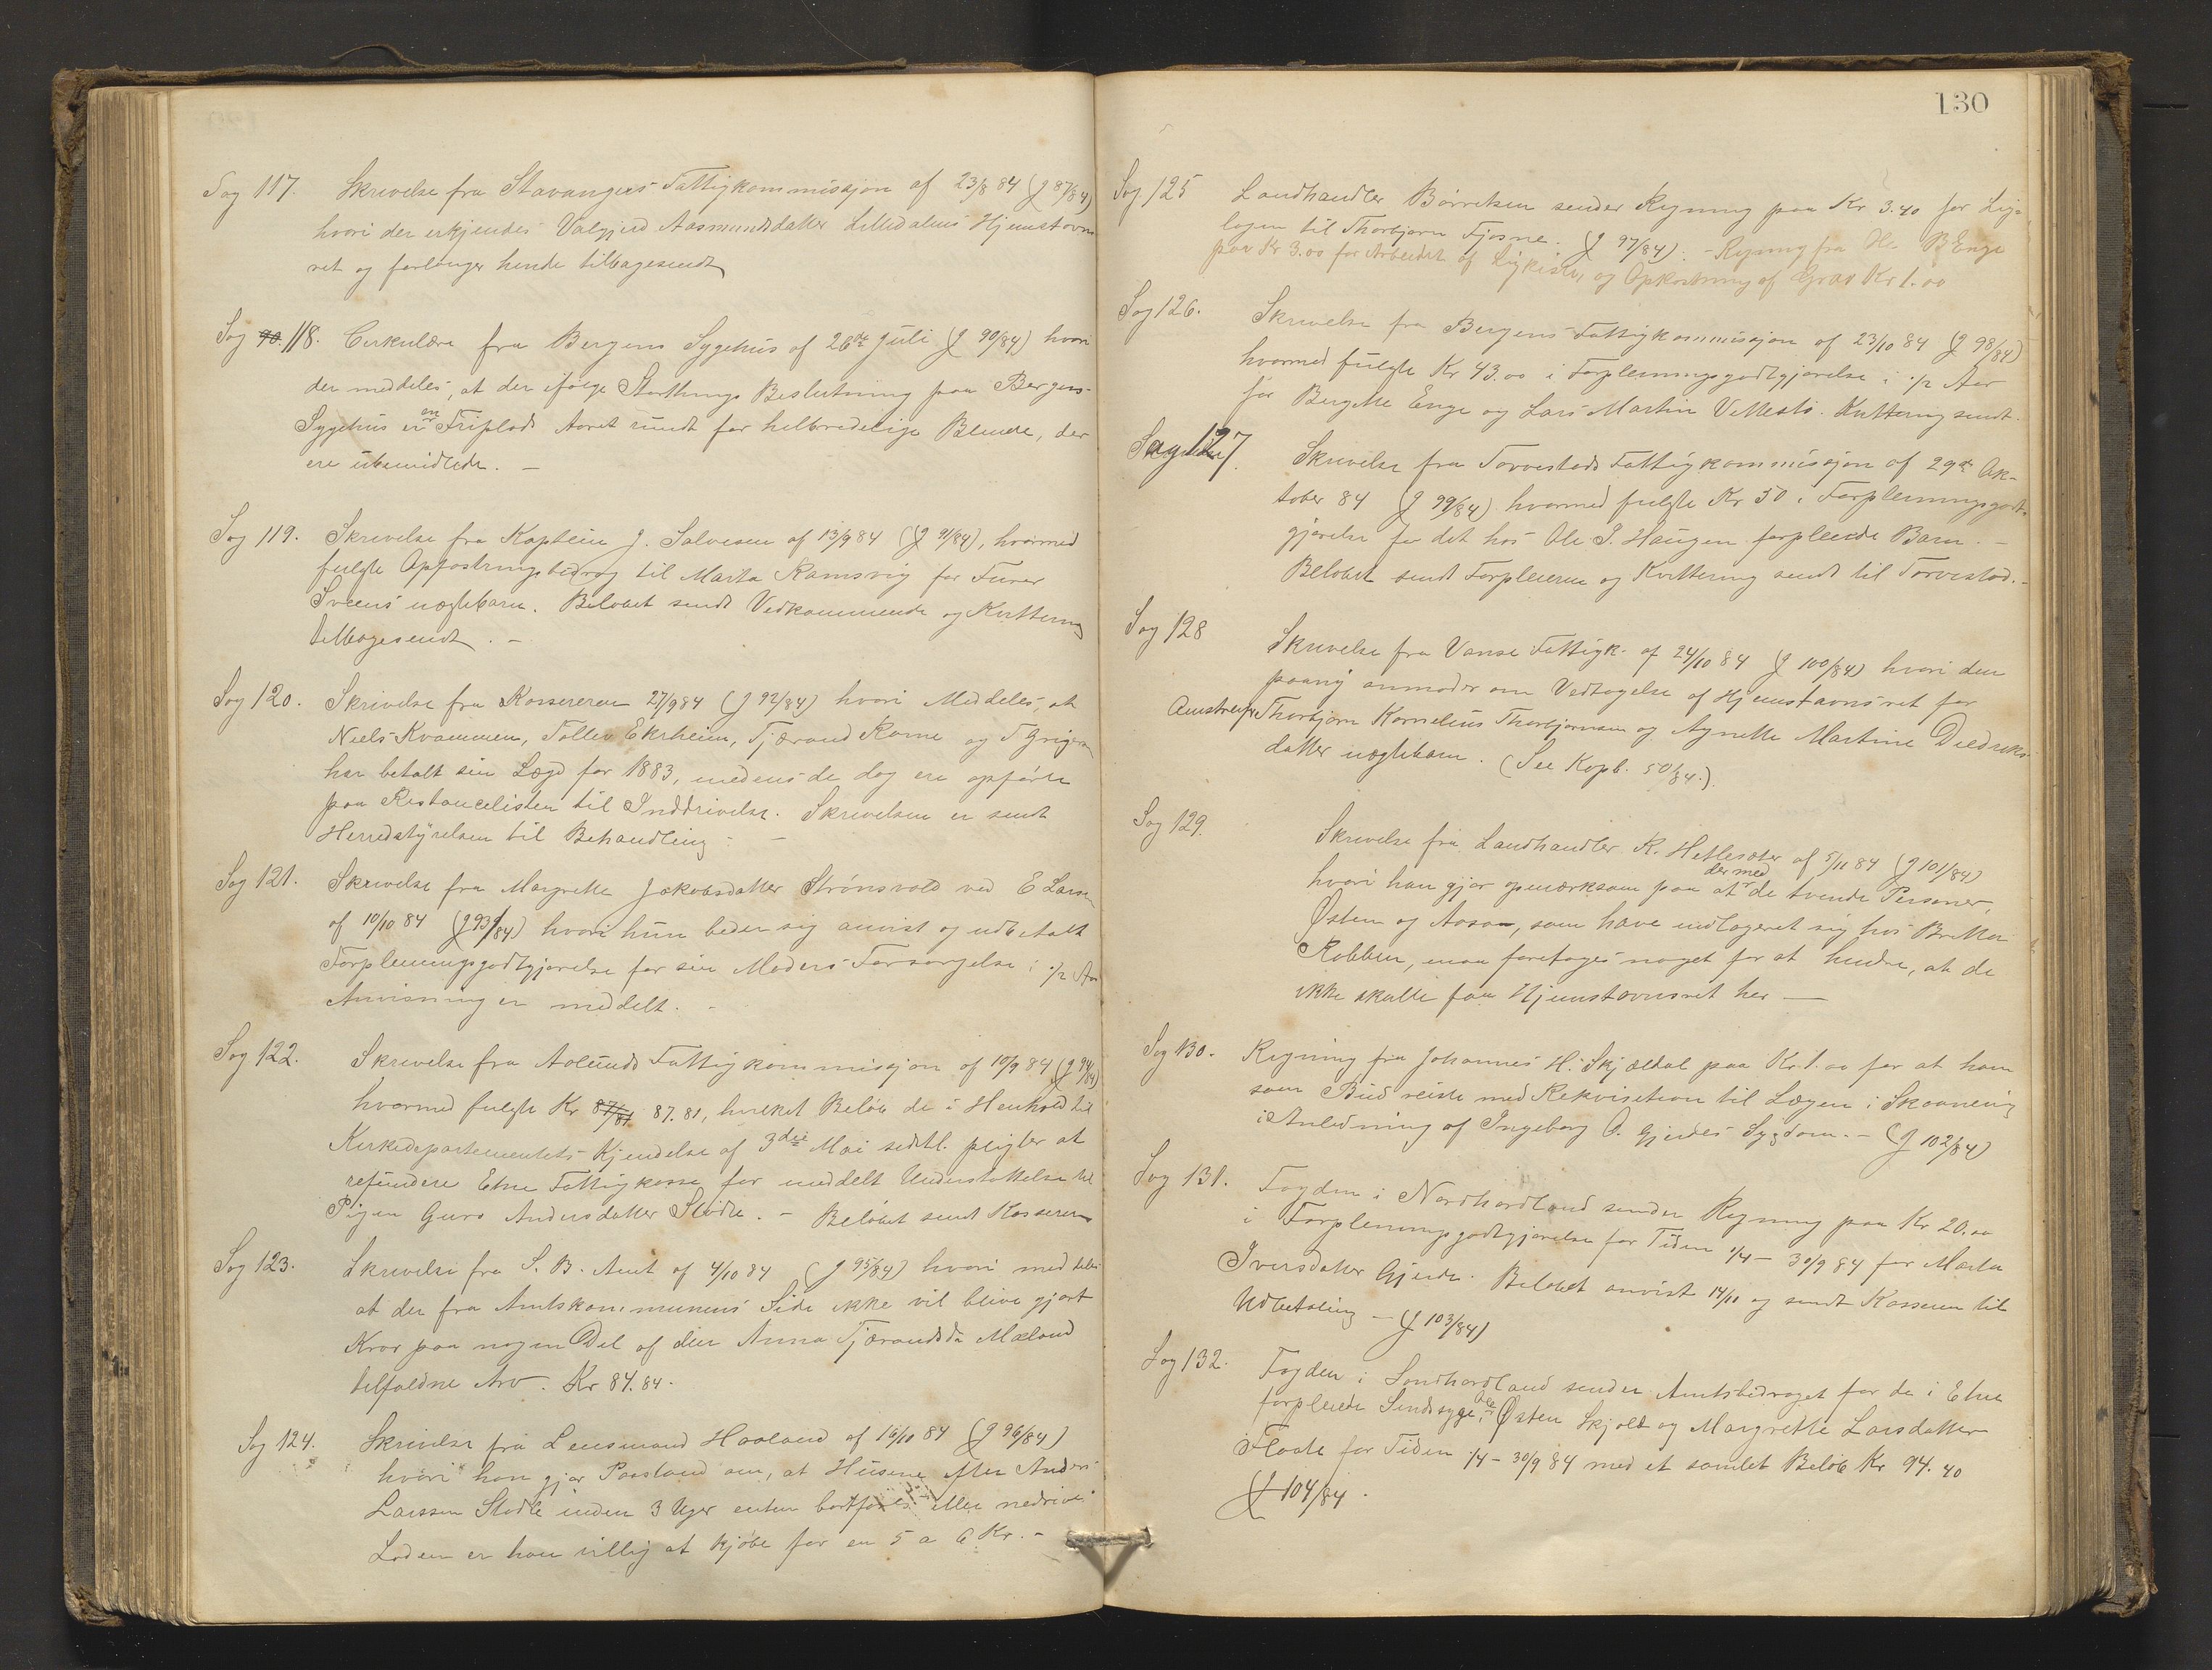 Sag 117. Skrivelse fra Stavangers Fattigkommissjon af 23/8 84 (J 87/84)
hvori der erkjendes Valgjerd Aasmundsdatter Lilledalens Hjemstavns
ret og forlanger hende tilbagesendt
Sag 90. 118. Cirkulære fra Bergens Sygehus af 26de Juli (J 90/84) hvori
der meddeles, at der ifølge Storthings Beslutning paa Bergens
Sygehus er en Friplads Aaret rundt for helbredelige Blinde, der
ere ubemidlede. —
Sag 119. Skrivelse fra Kaptein J. Salvesen af 13/9 84 (J 91/84), hvormed
fulgte Opfostringsbidrag til Marta Ramsvig for
Sveens uægtebarn. Beløbet sendt Vedkommende og Kvittering
tilbagesendt. —
Sag 120. Skrivelse fra Kassereren 27/9 84 (J 92/84) hvori Meddeles, at
Niels Kvammen, Tollev Ekrheim, Tjærand Rame og T Grigersen
har betalt sin Lægd for 1883, medens de dog ere opførte
paa Restancelisten til Inddrivelse. Skrivelsen er sendt
Herredstyrelsen til Behandling. —
Sag 121. Skrivelse fra Margrethe Jakobsdatter Strönsvold ved E Larsen
af 10/10 84 (J 93/84) hvori hun beder sig anvist og udbetalt
Forpleiningsgodtgjørelse for sin Moders Forsørgelse i 1/2 Aar
Anvisning er meddelt. -
Sag 122. Skrivelse fra Aalesunds Fattigkommissjon af 19/9 84 (J 94/84)
hvormed fulgte Kr 87/81 87.81, hvilket Beløb de i Henhold til
Kirkedepartementets Kjendelse af 3die Mai sidstl. pligter at
refundere Etne Fattigkasse for meddelt Understøttelse til
Pigen Guro Andersdatter Stødle. - Beløbet sendt Kassereren
Sag 123. Skrivelse fra S. B. Amt af 4/10 84 (J 95/84) hvori meddeles
at der fra Amtskommunens Side ikke vil blive gjort
Krav paa nogen Del af den Anna Tjærandsdr Mæland
tilfaldne Arv. Kr 84.84.
Sag 124. Skrivelse fra Lensmand Haaland af 16/10 84 (J 96/84)
hvori han gjør Paastand om, at Husene efter Anders
Larssen Stødle inden 3 Uger enten bortføres eller nedrives
Laden er han villig at kjøbe for en 5 a 6 Kr. -
130
Sag 125 Landhandler Börretsen sender Regning paa Kr 3.40 for Lig-
lagen til Thorbjørn Fjøsne. (J 97/84): - Regning fra B Enge
paa Kr 3.00 for Arbeidet af Ligkiste, og Opkastning af Grav Kr 1.00
Sag 126. Skrivelse fra Bergens Fattigkommissjon af 23/10 84 (J 98/84)
hvormed fulgte Kr 43.00 i Forpleiningsgodtgjørelse i 1/2 Aar
for Bergitte Enge og Lars Martin Vettestø. Kvittering sendt.
Sag 127. Skrivelse fra Torvestads Fattigkommissjon af 29de Ok-
tober 84 (J 99/84) hvormed fulgte Kr 50 i Forpleiningsgodt-
gjørelse for det hos Ole S. Haugen forpleiede Barn. —
Beløbet sendt Forpleierne og Kvittering sendt til Torvestad. -
Sag 128 Skrivelse fra Vanse Fattigk. af 24/10 84 (J 100/84) hvori den
paany anmoder om Vedtagelse af Hjemstavnsret for
Thorbjørn Kornelius Thorbjørnsen og Agnette Martine Diedriks
datter uægtebarn. (See Kopb. 50/84.)
Sag 129. Skrivelse fra Landhandler K. Hetlesæter af 5/11 84 (J 101/84)
hvori han gjør opmærksom paa at der med de tvende Personer,
Østen og Aasa, som have indlogeret sig hos Britha
Robben, maa foretages noget for at hindre, at de
ikke skulle faa Hjemstavnsret her —
Sag 130. Regning fra Johannes H. Skjældal paa Kr. 1.00 for at han
som Bud reiste med Rekvisition til Lægen i Skaanevig
i Anledning af Ingeborg O. Gjerdes Sygdom. - (J 102/84)
Sag 131. Fogden i Nordhordland sender Regning paa Kr 20.00
i Forpleiningsgodtgjørelse for Tiden 1/4 - 30/9 84 for Marta
Iversdatter Gjerde. Beløbet anvist 14/11 og sendt Kasseren til
Udbetaling — (J 103/84)
Sag 132. Fogden i Søndhordland sender Amtsbidraget for de i Etne
forpleiede Sindssyge, Østen Skjold og Margrethe Larsdatter
Flaate for Tiden 1/4 - 30/9 84 med et samlet Beløb Kr 94.40
J 104/84.